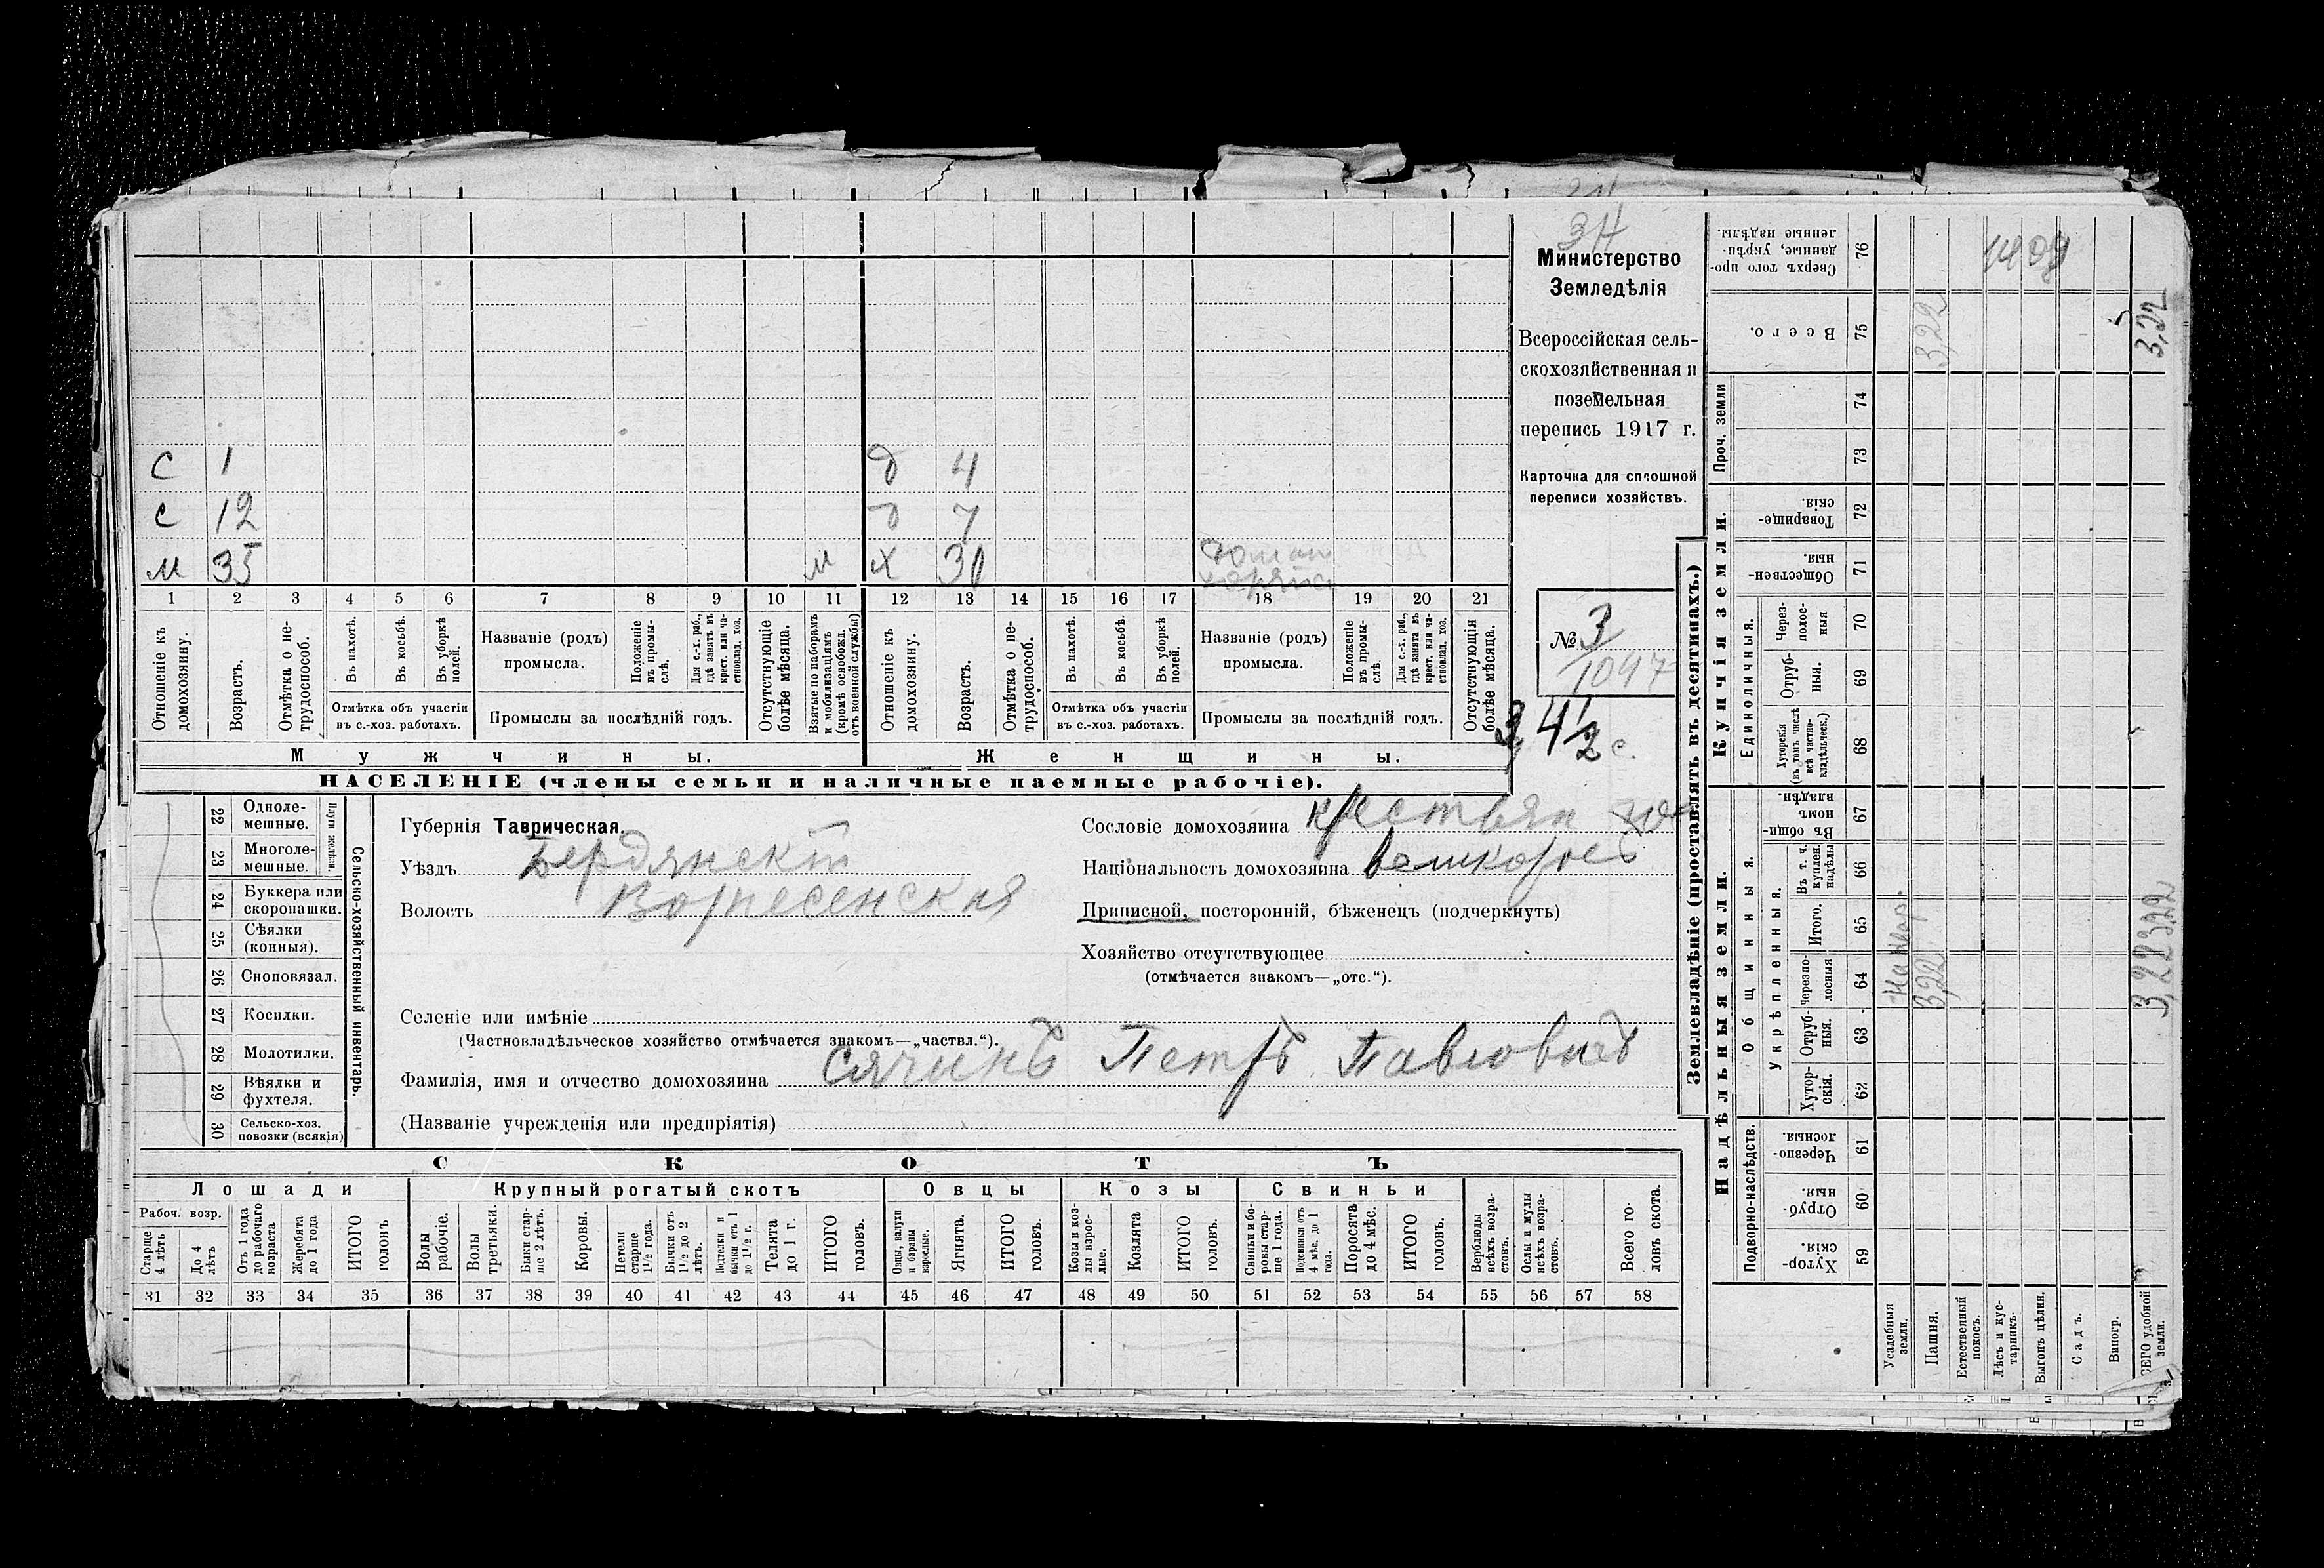 34
Министерство
Земледѣлія
Всероссійская сель-
скохозяйственная и
поземельная
перепись 1917 г.
Карточка для сплошной
переписи хозяйствъ.
№ 3
1097
3, 4 1/2 с.
с 1 д 4
с 12 д 7
м 35 м х 30
1 2 3 4 5 6 7 8 9 10 11 12 13 14 15 16 17 18 19 20 21
Отношеніе къ домохозяину.
Возрастъ.
Отмѣтка о не-трудоспособ.
Въ пахотѣ.
Въ косьбѣ.
Въ уборкѣ полей.
Отмѣтка объ участіи
въ с.-хоз. работахъ.
Названіе (родъ)
промысла.
Положеніе въ промы-слѣ.
Для с.-х. раб., гдѣ занятъ въ крест. или ча-стновлад. хоз.
Промыслы за послѣдній годъ.
Отсутствующіе болѣе мѣсяца.
Взятые по наборамъ и мобилизаціямъ (кромѣ освобожд. отъ военной службы)
Отношеніе къ домохозяину.
Возрастъ.
Отмѣтка о не-трудоспособ.
Въ пахотѣ.
Въ косьбѣ.
Въ уборкѣ полей.
Отмѣтка объ участіи
въ с.-хоз. работахъ.
Названіе (родъ)
промысла.
Положеніе въ промы-слѣ.
Для с.-х. раб., гдѣ занята въ крест. или ча-стновлад. хоз.
Промыслы за послѣдній годъ.
Отсутствующія болѣе мѣсяца.
Мужчины. Женщины.
НАСЕЛЕНІЕ (члены семьи и наличные наемные рабочіе).
22 Однолемешные.
23 Многолемешные.
Плуги желѣзн.
24 Буккера или скоропашки.
25 Сѣялки (конныя).
26 Сноповязал.
27 Косилки.
28 Молотилки.
29 Вѣялки и фухтеля.
30 Сельско-хоз. повозки (всякія)
Сельско-хозяйственный инвентарь.
Губернія Таврическая.
Уѣздъ Бердянскій
Волость Вознесенская
Сословіе домохозяина крестьян
Національность домохозяина великорос
Приписной, посторонній, бѣженец (подчеркнуть)
Хозяйство отсутствующее
(отмѣчается знакомъ—„отс.“).
Селеніе или имѣніе
(Частновладѣльческое хозяйство отмѣчается знакомъ—„частвл.“).
Фамилія, имя и отчество домохозяина Сячинъ Петръ Павловичъ
(Названіе учрежденія или предпріятія)
СКОТЪ
Лошади Крупный рогатый скотъ Овцы Козы Свиньи
Рабоч. возр.
Старше 4 лѣтъ
До 4 лѣтъ
Отъ 1 года до рабочаго возраста
Жеребята до 1 года
ИТОГО головъ
Волы рабочіе.
Волы третьяки.
Быки стар-ше 2 лѣтъ.
Коровы.
Нетели старше 1½ года.
Бычки отъ 1½ до 2 лѣтъ.
Подтелки и бычки отъ 1 до 1½ г.
Телята до 1 г.
ИТОГО головъ.
Овцы, валухи и бараны взрослые.
Ягнята.
ИТОГО головъ.
Козы и коз-лы взрос-лые.
Козлята
ИТОГО головъ.
Свиньи и бо-ровы стар-ше 1 года.
Подсвинки отъ 4 мѣс. до 1 года.
Поросята до 4 мѣс.
ИТОГО головъ.
Верблюды всѣхъ возра-стовъ.
Ослы и мулы всѣхъ возра-стовъ.
Всего го-ловъ скота.
31 32 33 34 35 36 37 38 39 40 41 42 43 44 45 46 47 48 49 50 51 52 53 54 55 56 57 58
Землевладѣніе (проставлять въ десятинахъ.)
Надѣльныя земли. Купчія земли.
Подворно-наслѣдств.
Общинныя.
Укрѣпленныя.
Единоличныя.
Проч. земли
Сверхъ того про-данные, укрѣп-ленные надѣлы. 76
Всего. 75 3,22 3,22
74
73
Товарище-скія. 72
Обществен-ныя 71
Через-полос-ныя 70
Отруб-ныя. 69
Хуторскія (въ томъ числѣ всѣ частно-владѣльческ.) 68
Въ общин-номъ владѣн. 67
Въ т. ч. куплен. надѣлы 66
Итого. 65
Черезпо-лосныя 64 3,22
Отруб-ныя. 63
Хутор-скія. 62
Черезпо-лосныя. 61
Отруб-ныя. 60
Хутор-скія. 59
Усадебныя земли.
Пашня.
Естественный покосъ.
Лѣсъ и кус-тарникъ.
Выгонъ цѣлин.
Садъ.
Виногр.
ВСЕГО удобной земли.